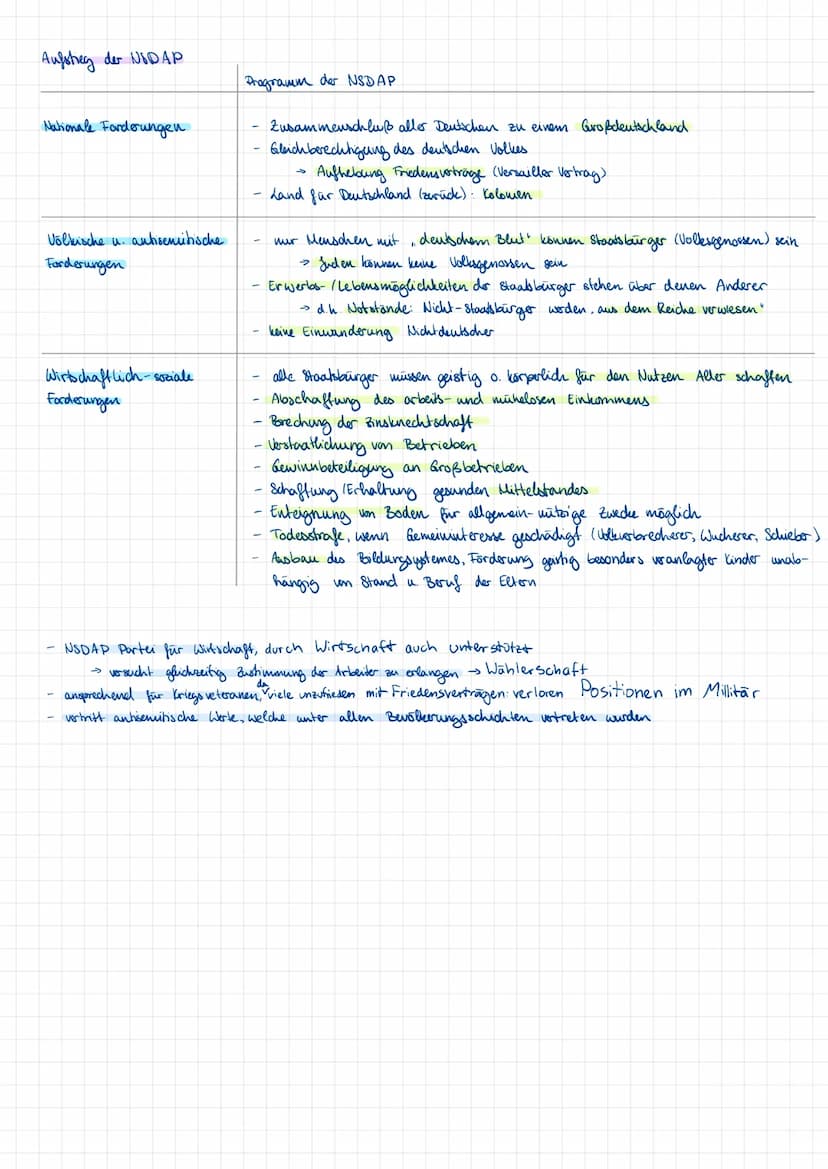 Aufstieg der NSDAP
Programm der NSDAP
Nationale Forderungen
- Zusammenschluß aller Deutschen zu einem Großdeutschland
- Gleichberechtigung des deutschen Volkes
→ Aufhebung Friedensverträge (Versailler Vertrag)
- Land für Deutschland (zurück): Kolonien
Völkische u. antisemitische
Forderungen
- nur Menschen mit „deutschem Blut" können Staatsbürger (Volksgenossen) sein
→ Juden können keine Volksgenossen sein
- Erwerbs-/Lebensmöglichkeiten der Staatsbürger stehen über denen Anderer
→ d.h. Notstände: Nicht-Staatsbürger werden „aus dem Reiche verwiesen"
- keine Einwanderung Nichtdeutscher
Wirtschaftlich-soziale
Forderungen
- alle Staatsbürger müssen geistig o. körperlich für den Nutzen Aller schaffen
- Abschaffung des arbeits- und mühelosen Einkommens
- Brechung der Zinsknechtschaft
- Verstaatlichung von Betrieben
- Gewinnbeteiligung an Großbetrieben
- Schaffung/Erhaltung gesunden Mittelstandes
- Enteignung von Boden für allgemein-nützige Zwecke möglich
- Todesstrafe, wenn Gemeininteresse geschädigt (Volksverbrecherer, Wucherer, Schieber)
- Ausbau des Bildungsystemes, Förderung geistig besonders veranlagter Kinder unab-
hängig von Stand u. Beruf der Eltern
- NSDAP Partei für Wirtschaft, durch Wirtschaft auch unterstützt
→ versucht gleichzeitig Zustimmung der Arbeiter zu erlangen → Wählerschaft
- ansprechend für Kriegsveteranen, da viele unzufrieden mit Friedensverträgen: verloren Positionen im Millitär
- vertritt antisemitische Werte, welche unter allen Bevölkerungsschichten vertreten wurden